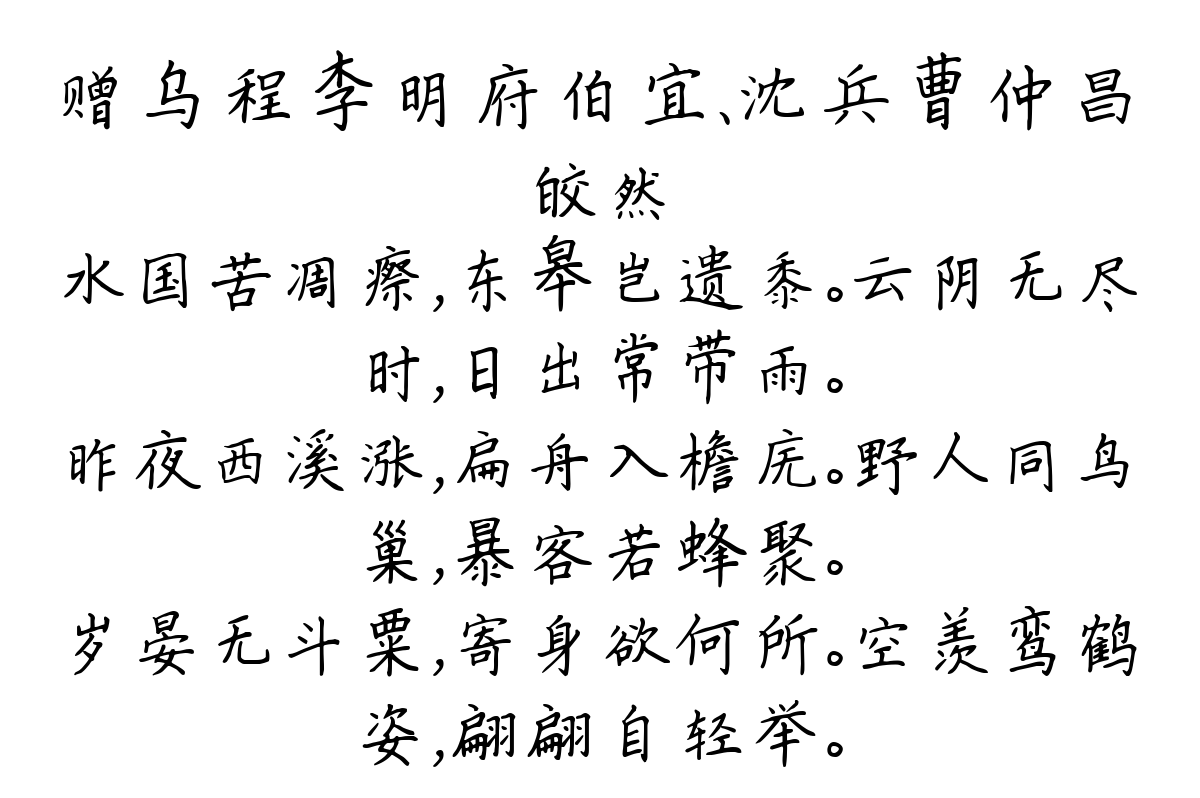 赠乌程李明府伯宜、沈兵曹仲昌
皎然
水国苦凋瘵,东皋岂遗黍。云阴无尽
时,日出常带雨。
昨夜西溪涨,扁舟入檐庑。野人同鸟
巢,暴客若蜂聚。
岁晏无斗粟,寄身欲何所。空羡鸾鹤
姿,翩翩自轻举。